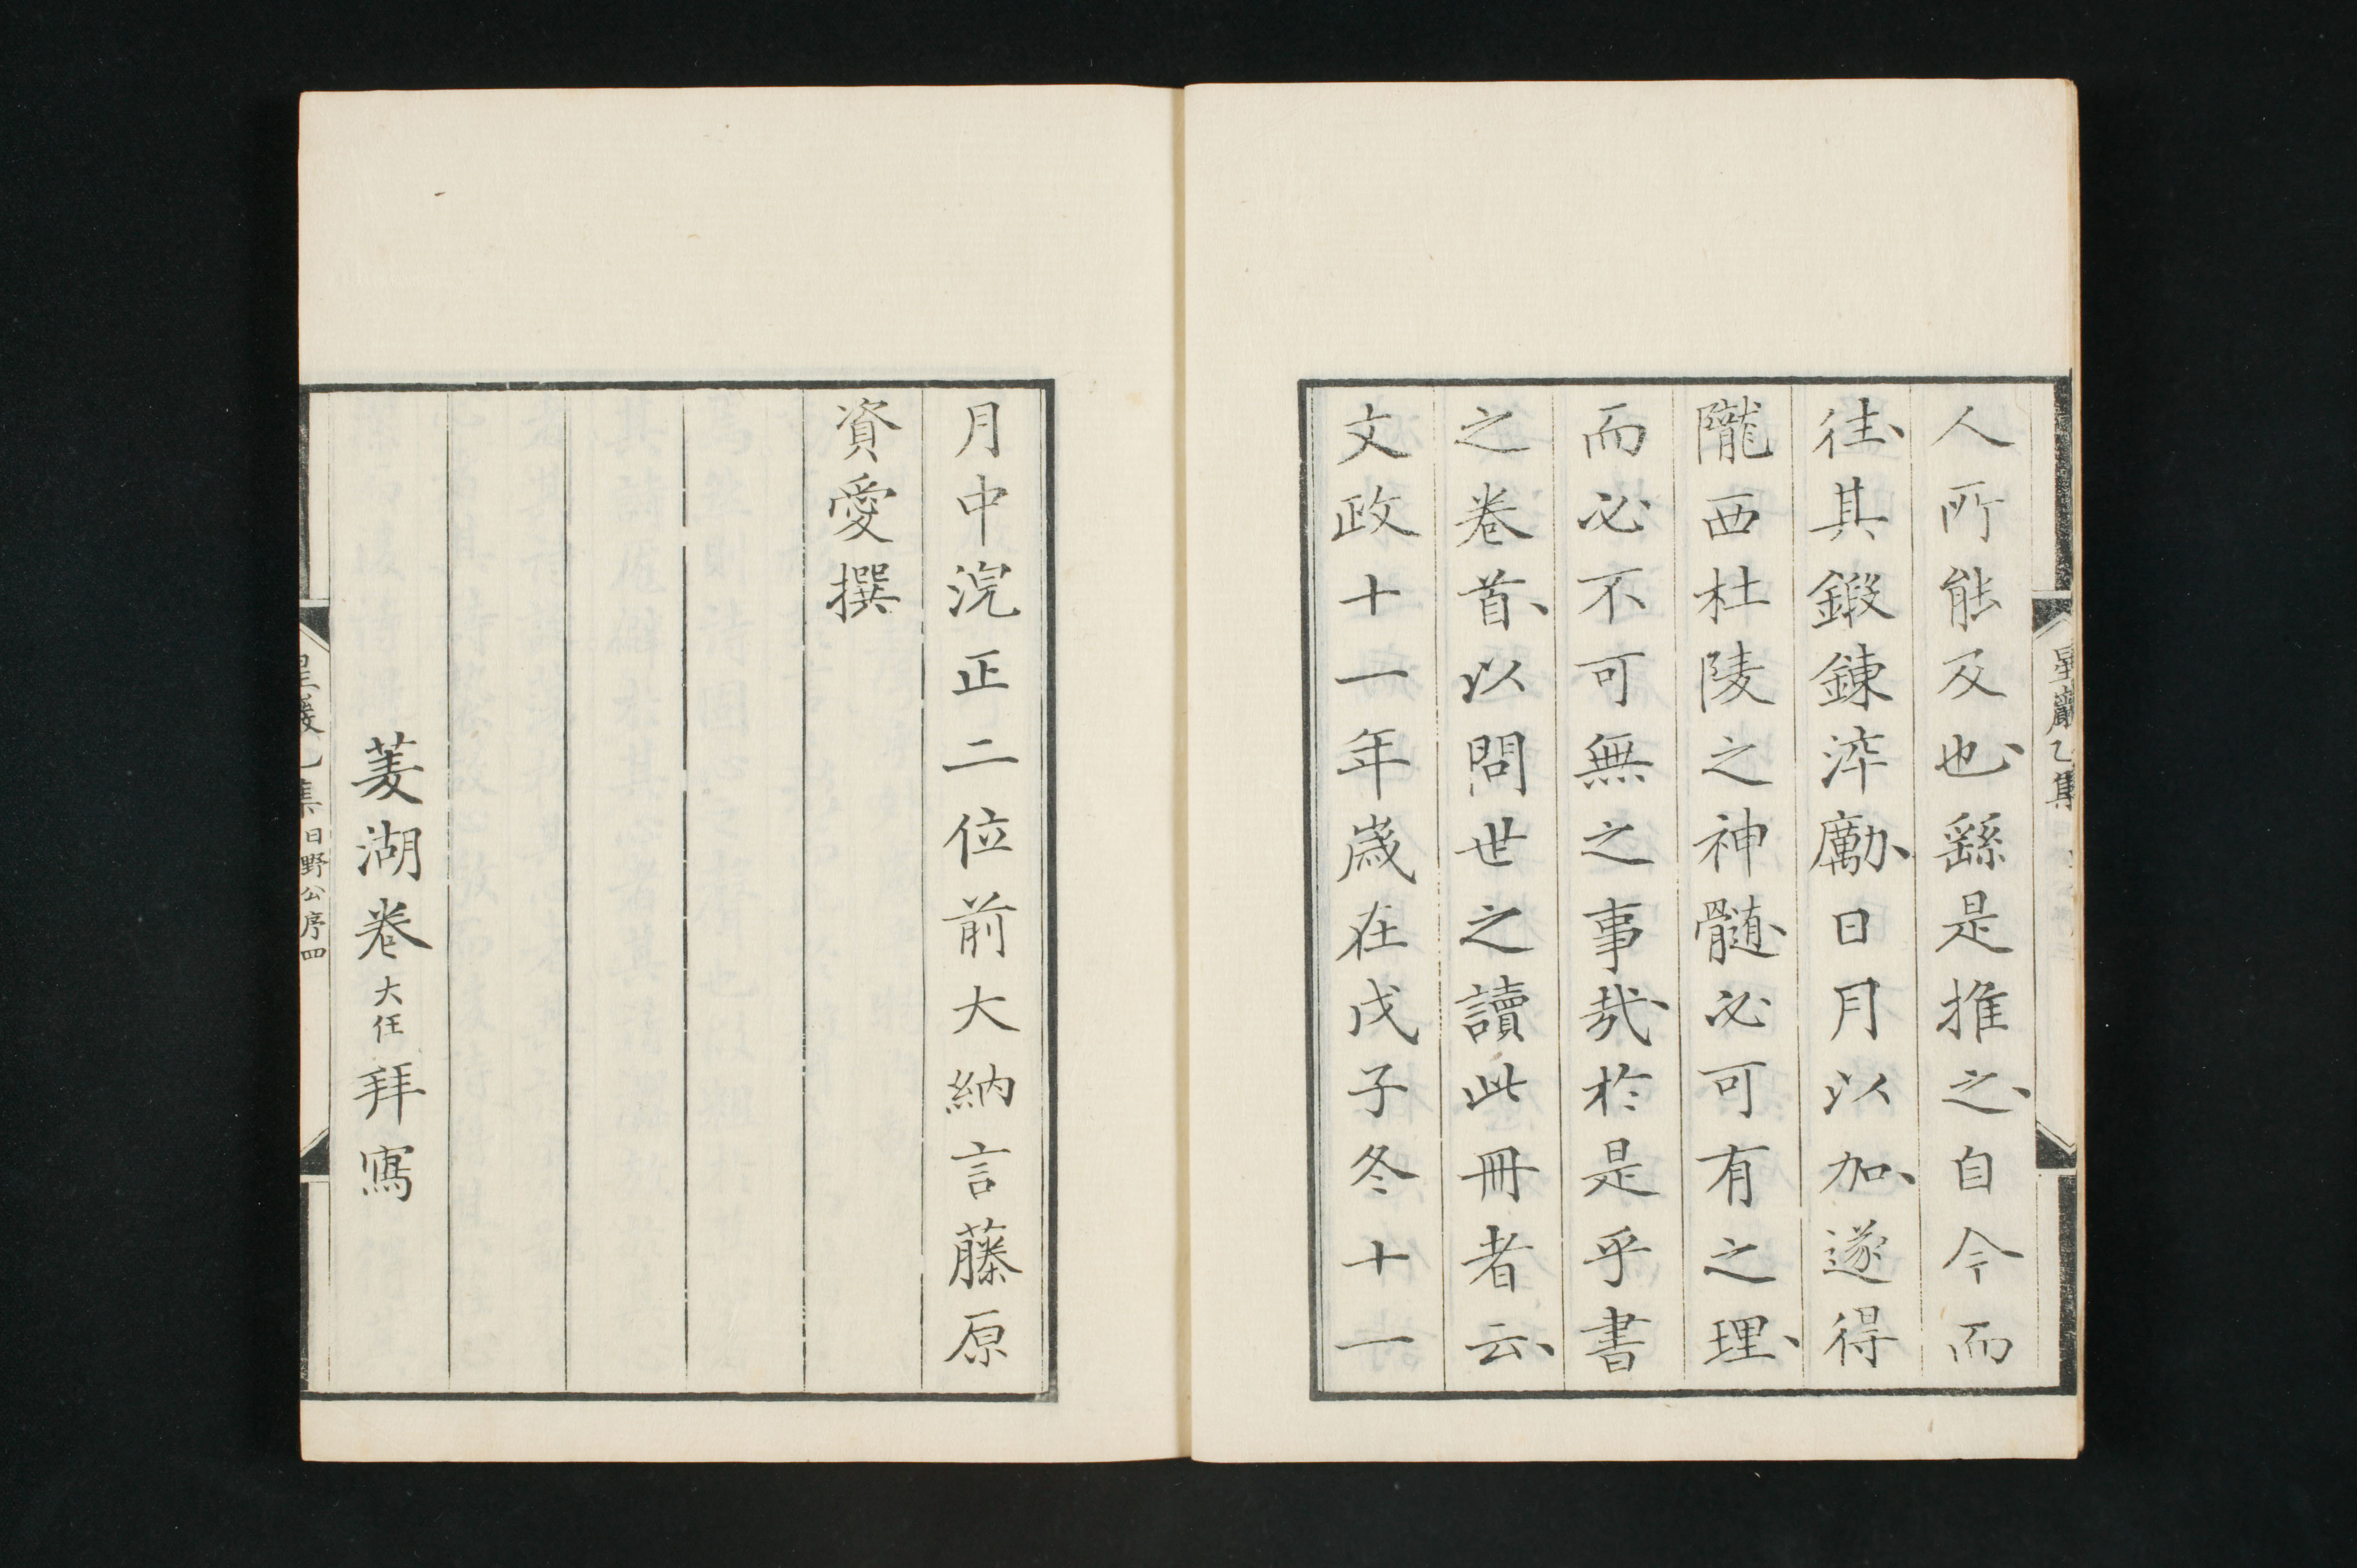 人所能及也、繇是推之、自今而
往、其鍛鍊淬勵、日月以加、遂得
隴西杜陵之神髓、必可有之理、
而必不可無之事哉、於是乎書
之卷首、以問世之讀此冊者云、
文政十一年歳在戊子冬十一
月中浣正二位前大納言藤原
資愛撰
菱湖卷大任拜寫
星巖乙集
星巖乙集 日野公序 四